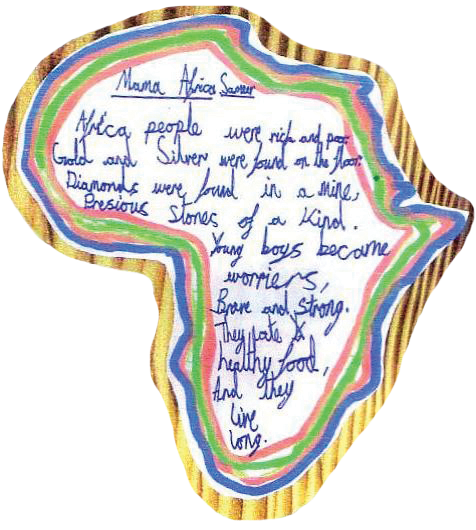 Mama Africa Samier
Africa people were rich and poor,
Gold and Silver were found on the floor.
Diamonds were found in a mine,
Presious Stones of a Kind.
Young boys became
worriers,
Brave and Strong.
They ate
healthy food,
And they
live
long.